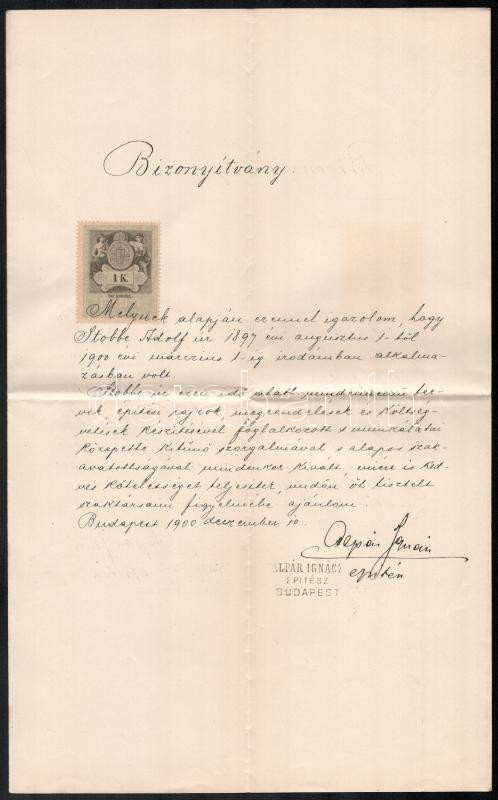 Bizonyítvány
1 K.
EGY KORONA
Melynek alapján ezennel igazolom, hogy
Stobbe Adolf úr 1897 évi augusztus 1-től
1900 évi márczius 1-ig irodámban alkalma-
zásban volt.
Stobbe úr ezen idő alatt mindennemű ter-
vek, épitési rajzok, megrendelések s költség-
vetések készitésével foglalkozott s munkálatai
közepette kitünő szorgalmával s alapos szak-
avatottságával mindenkor kivált, miért is ked-
ves kötelességet teljesitek, midőn őt tisztelt
szaktársaim figyelmébe ajánlom.
Budapest 1900 deczember 10.
Alpár Ignácz
épitész
ALPÁR IGNÁCZ
ÉPITÉSZ
BUDAPEST